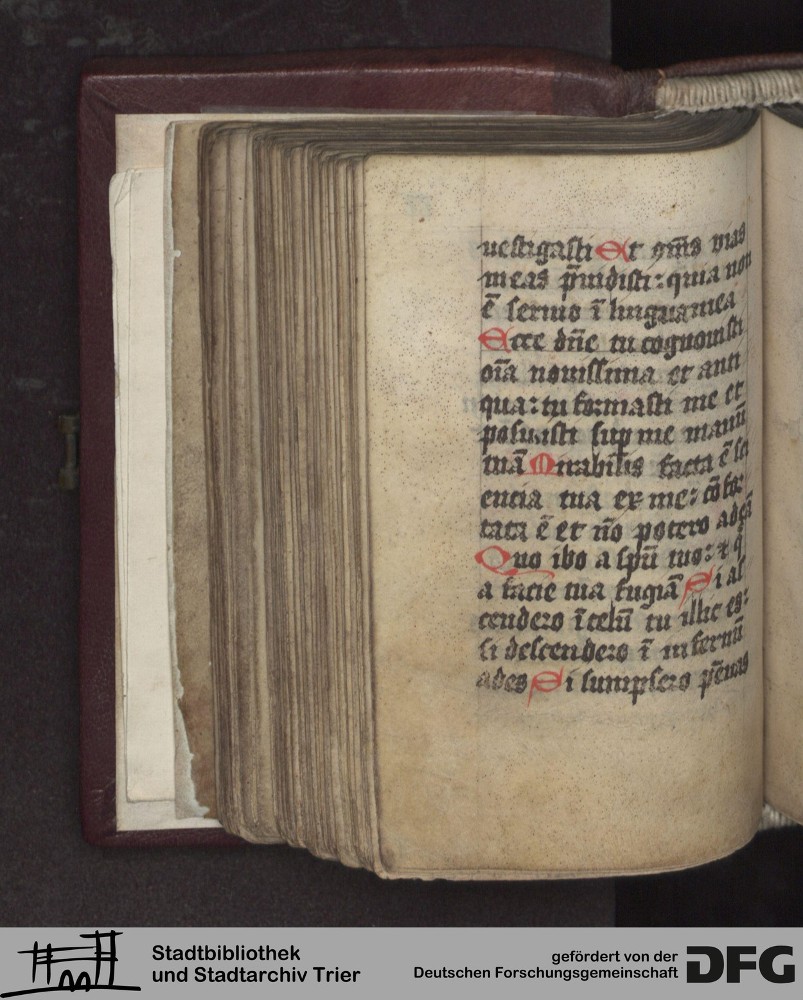 uestigasti Et om̄s vias
meas p̄uidisti: quia non
ē sermo ī lingua mea
Ecce dn̄e tu cognouisti
oīa nouissima et anti
qua: tu formasti me et
posuisti sup me manū
tuā Mirabilis facta ē sci
encia tua ex me: cōfor
tata ē et nō potero ad eā
Quo ibo a spū tuo: et q̄
a facie tua fugiā Si as
cendero ī celū tu illic es:
si descendero ī infernū
ades Si sumpsero pēnas
Stadtbibliothek
und Stadtarchiv Trier
gefördert von der
Deutschen Forschungsgemeinschaft
DFG